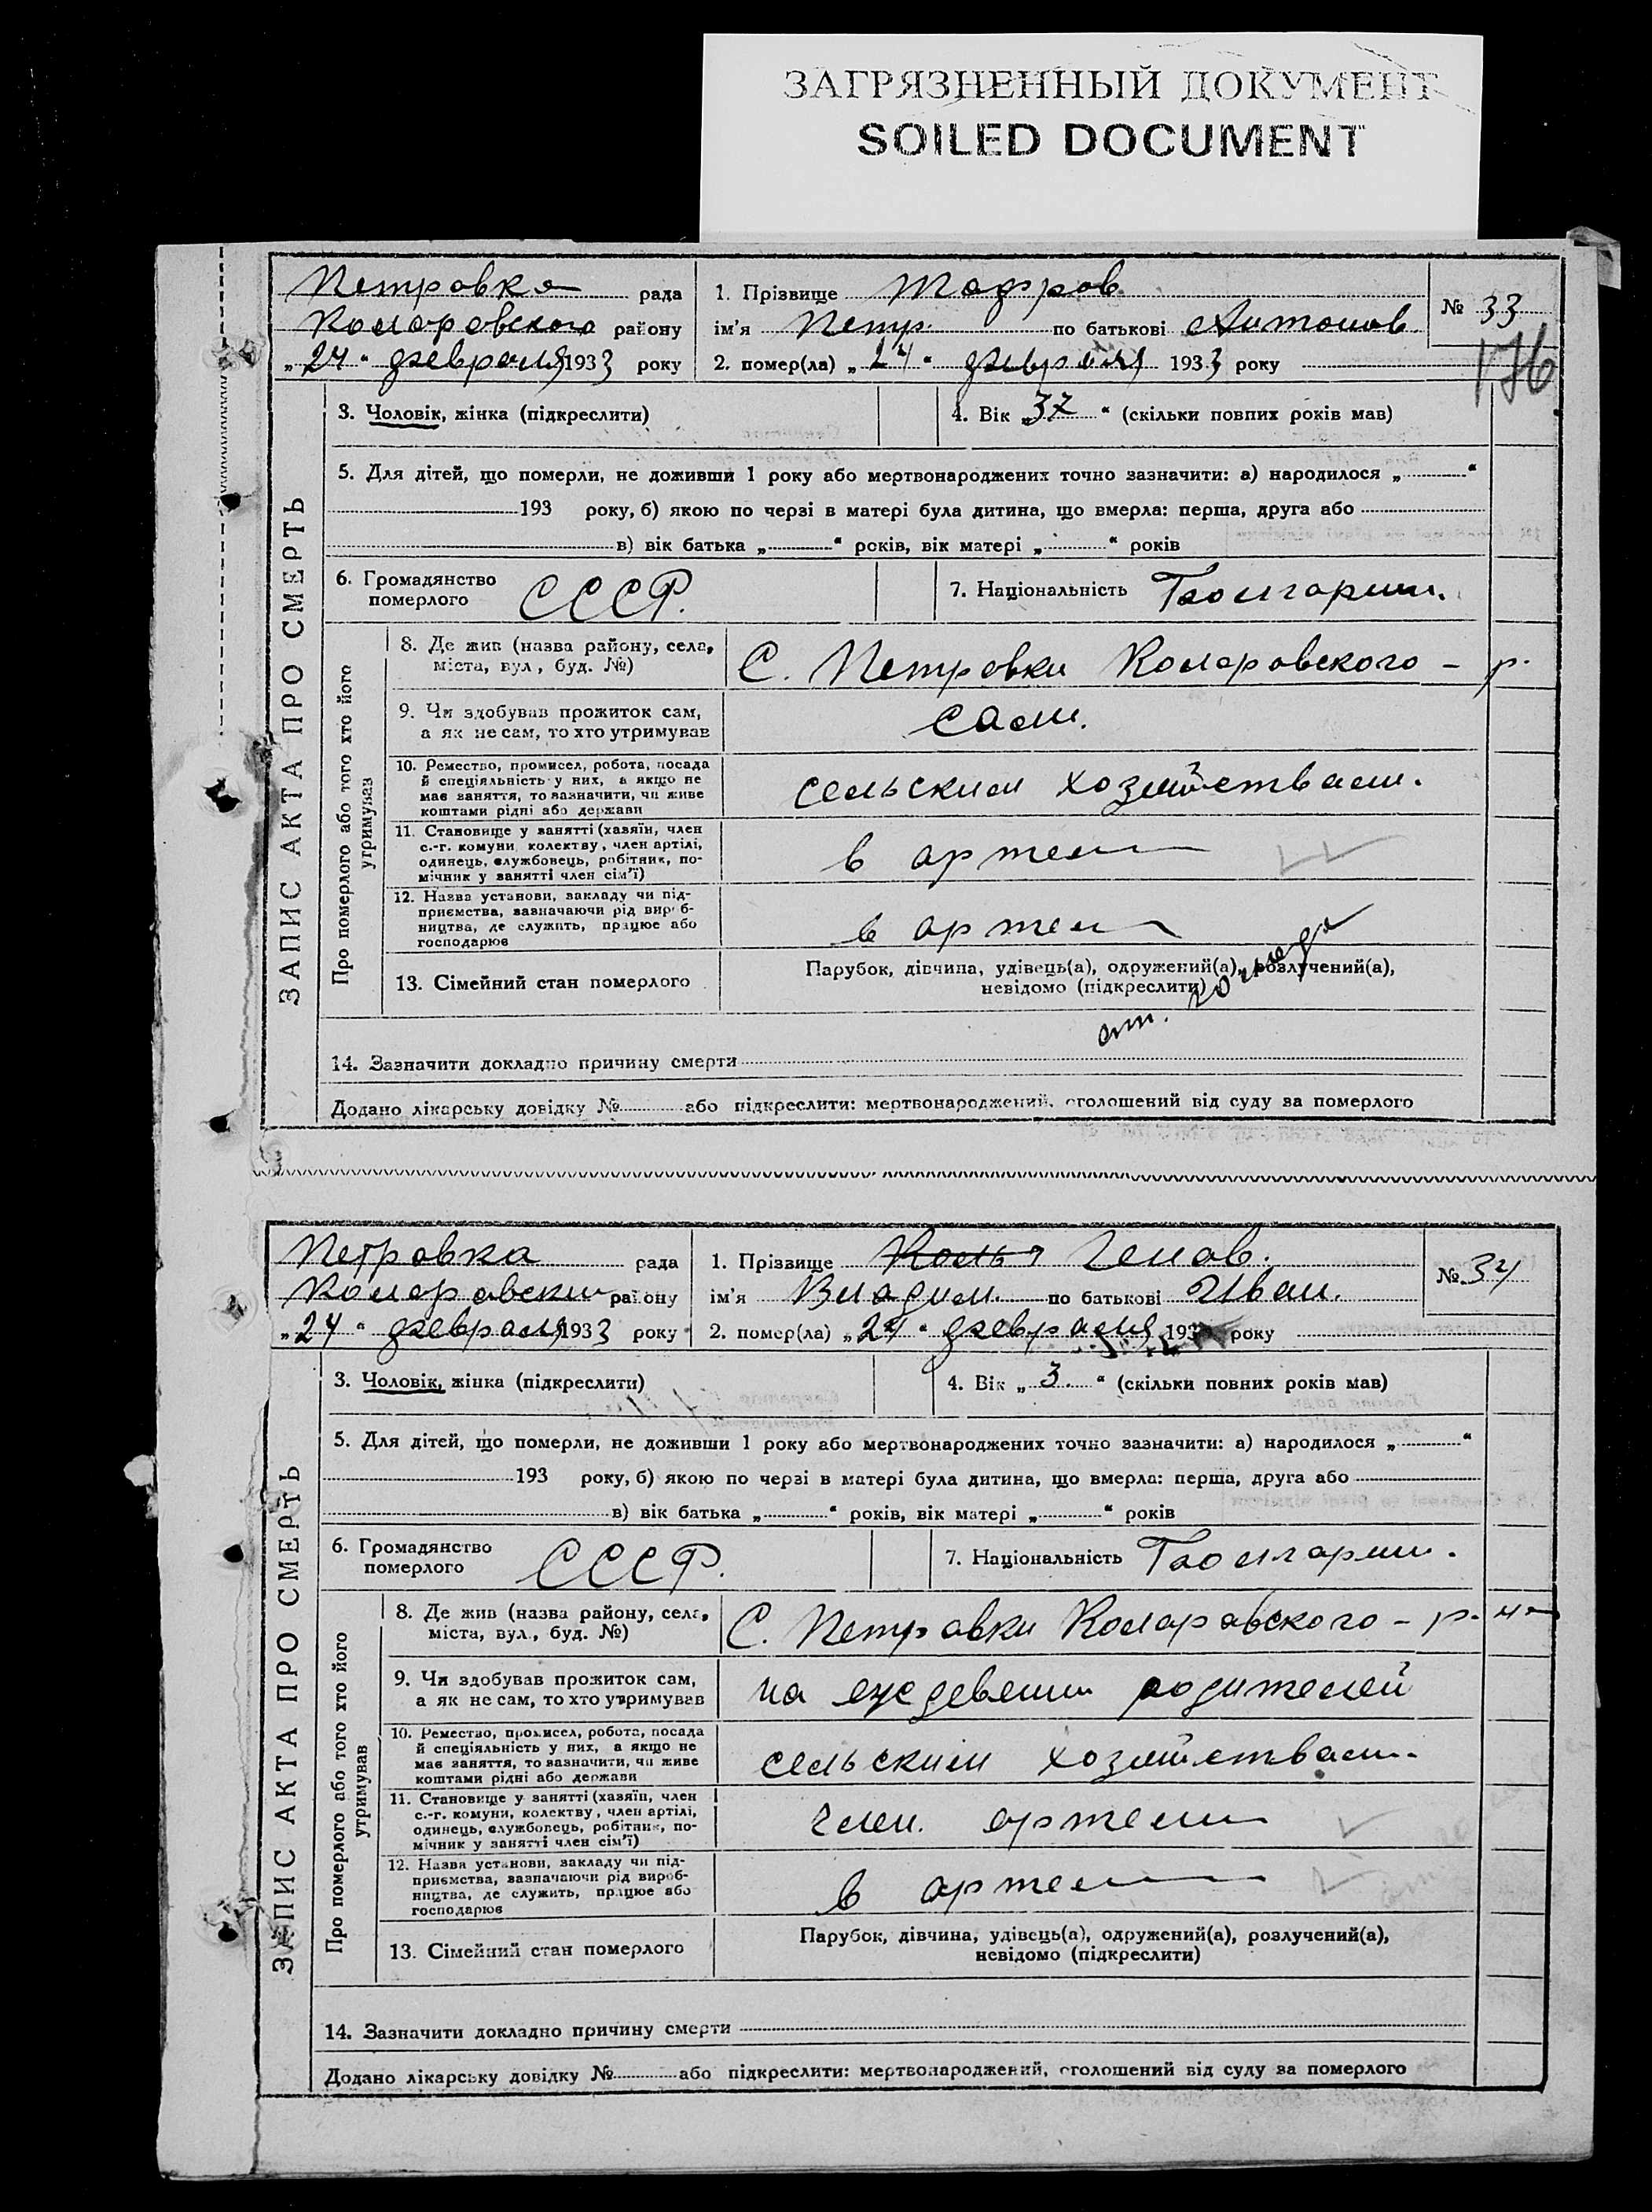 ЗАГРЯЗНЕННЫЙ ДОКУМЕНТ
SOILED DOCUMENT
Петровка рада
Коларовского району
„24“ февраля 1933 року
1. Прізвище
ім'я Петр. по батькові Антонов
2. помер(ла) „24“ февраля 1933 року
№ 33
176
ЗАПИС АКТА ПРО СМЕРТЬ
3. Чоловік, жінка (підкреслити)
4. Вік „37“ (скільки повних років мав)
5. Для дітей, що померли, не доживши 1 року або мертвонароджених точно зазначити: а) народилося „ “
193 року, б) якою по черзі в матері була дитина, що вмерла: перша, друга або
в) вік батька „ “ років, вік матері „ “ років
6. Громадянство
померлого
СССР.
7. Національність Болгарин.
Про померлого або того хто його
утримував
8. Де жив (назва району, села,
міста, вул, буд. №)
С. Петровки Коларовского - р.
9. Чи здобував прожиток сам,
а як не сам, то хто утримував
сам.
10. Ремество, промисел, робота, посада
й спеціяльність у них, а якщо не
має заняття, то зазначити, чи живе
коштами рідні або держави
сельским хозяйством.
11. Становище у занятті (хазяїн, член
с.-г. комуни, колектву, член артілі,
одинець, службовець, робітник, по-
мічник у занятті член сім'ї)
в артели
12. Назва установи, закладу чи під-
приємства, зазначаючи рід вироб-
ництва, де служить, працює або
господарює
в артели
13. Сімейний стан померлого
Парубок, дівчина, удівець(а), одружений(а), розлучений(а),
невідомо (підкреслити)
от. голода
14. Зазначити докладно причину смерти
Додано лікарську довідку № або підкреслити: мертвонароджений, оголошений від суду за померлого
Петровка рада
Коларовский району
„24“ февраля 1933 року
1. Прізвище Генов.
ім'я Владим. по батькові Иван.
2. помер(ла) „24“ февраля 193 року
№ 34
ЗАПИС АКТА ПРО СМЕРТЬ
3. Чоловік, жінка (підкреслити)
4. Вік „3.“ (скільки повних років мав)
5. Для дітей, що померли, не доживши 1 року або мертвонароджених точно зазначити: а) народилося „ “
193 року, б) якою по черзі в матері була дитина, що вмерла: перша, друга або
в) вік батька „ “ років, вік матері „ “ років
6. Громадянство
померлого
СССР.
7. Національність Болгарин.
Про померлого або того хто його
утримував
8. Де жив (назва району, села,
міста, вул., буд. №)
С. Петровки Коларовского - р-на
9. Чи здобував прожиток сам,
а як не сам, то хто утримував
на еждевении родителей
10. Ремество, промисел, робота, посада
й спеціяльність у них, а якщо не
має заняття, то зазначити, чи живе
коштами рідні або держави
сельским хозяйством.
11. Становище у занятті (хазяїн, член
с.-г. комуни, колектву, член артілі,
одинець, службовець, робітник, по-
мічник у занятті член сім'ї)
член. артели
12. Назва установи, закладу чи під-
приємства, зазначаючи рід вироб-
ництва, де служить, працює або
господарює
в артели
13. Сімейний стан померлого
Парубок, дівчина, удівець(а), одружений(а), розлучений(а),
невідомо (підкреслити)
14. Зазначити докладно причину смерти
Додано лікарську довідку № або підкреслити: мертвонароджений, оголошений від суду за померлого